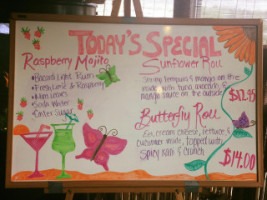 TODAY'S SPECIAL
Raspberry Mojito
• Bacardi Light Rum
• Fresh Lime & Raspberry
• Mint Leaves
• Soda Water
Sunflower Roll
Shrimp tempura & mango on the
inside with tuna, avocado &
mango sauce on the outside
$12.95
Butterfly Roll
cream cheese, lettuce, &
cucumber inside, topped with
Spicy Kani & Crunch
$14.00